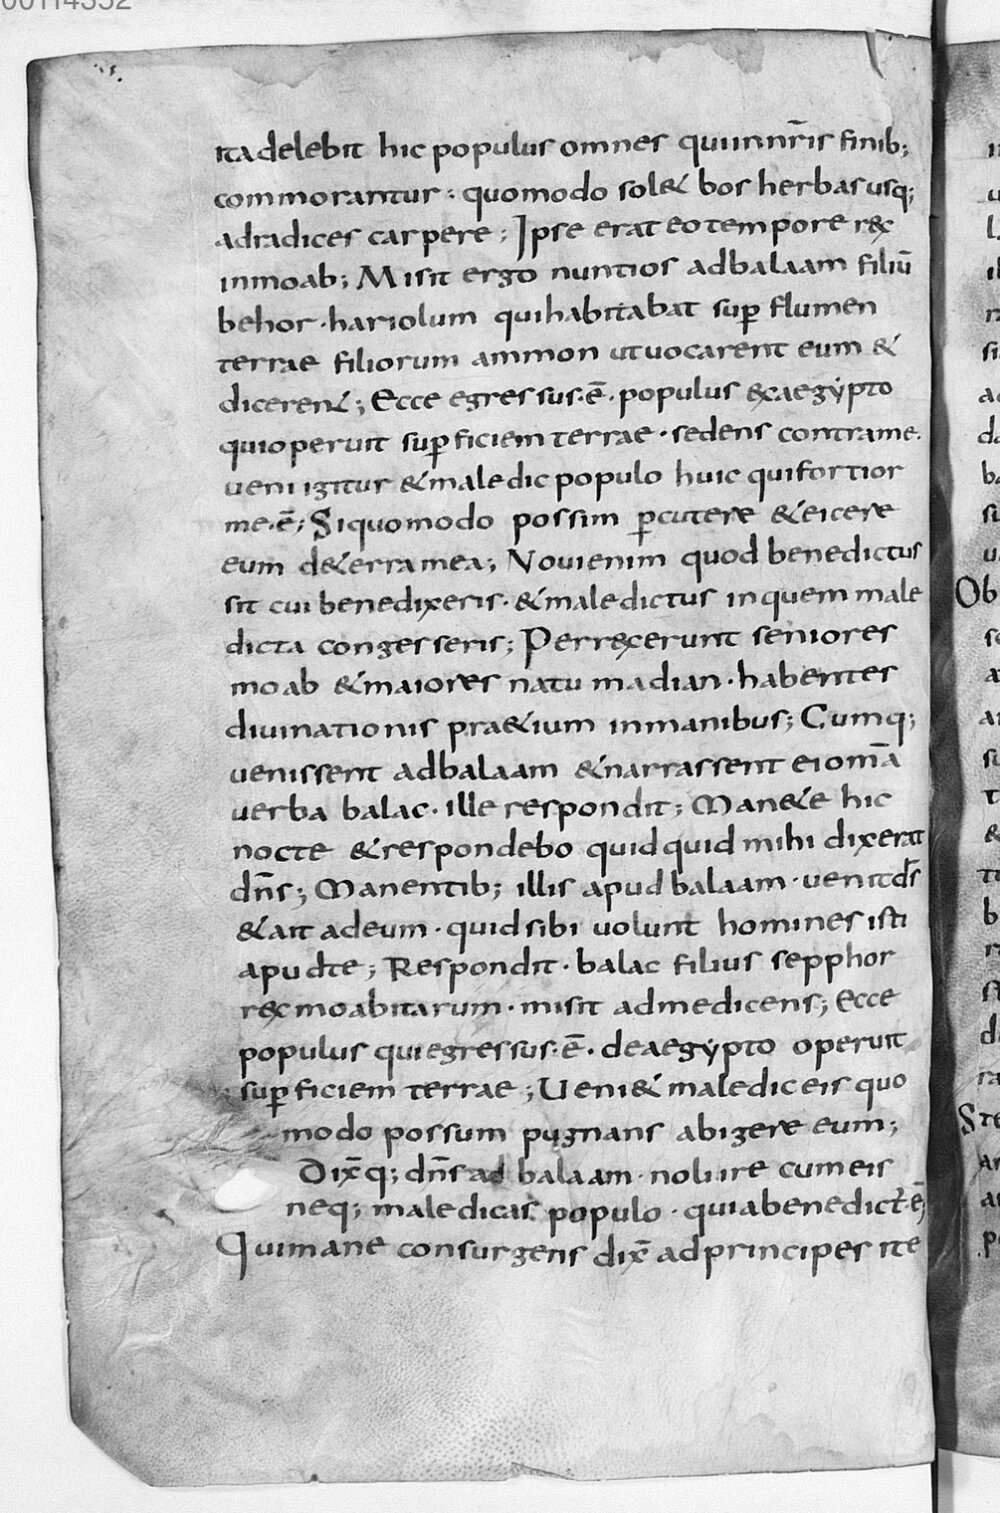 ita delebit hic populus omnes qui innr̄is finib;
commorantur · quomodo sol& bos herbas usq;
adradices carpere ; Ipse erat eotempore rex
inmoab; Misit ergo nuntios adbalaam filiū
behor · hariolum quihabitabat sup̄ flumen
terrae filiorum ammon utuocarent eum &
dicerent; Ecce egressus · ē · populus exaegẏpto
quioperuit sup̄ficiem terrae · sedens contrame ·
ueni igitur & maledic populo huic quifortior
me · ē; Siquomodo possim p̄cutere & eicere
eum det&erra mea; Noui enim quod benedictus
sit cui benedixeris · & maledictus inquem male
dicta congesseris; Perrexerunt seniores
moab & maiores natu madian · habentes
diuinationis pra&ium inmanibus; Cumq;
uenissent adbalaam & narrassent eiom̄a
uerba balac · ille respondit; Man&e hic
nocte & respondebo quidquid mihi dixerat
dn̄s; Manentib; illis apud balaam · uenitd̄s
& ait adeum · quid sibi uolunt homines isti
apud te; Respondit · balac filius sepphor
rex moabitarum · misit admedicens; Ecce
populus quiegressus · ē · deaegẏpto operuit
sup̄ficiem terrae ; Ueni & malediceis quo
modo possum pugnans abigere eum;
Dix̄q; dn̄s ad balaam · noli ire cumeis
neq; maledicas populo · quiabenedict · ē;
Qui mane consurgens dix̄ adprincipes ite